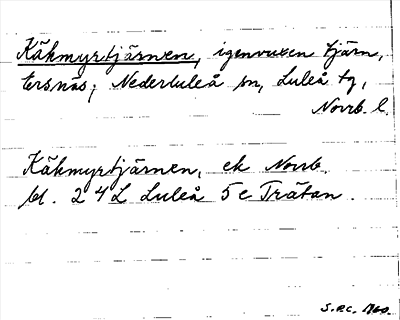 Käkmyrtjärnen, igenvuxen tjärn,
Ersnäs, Nederluleå sn, Luleå tg,
Norrb. l.
Käkmyrtjärnen, ek Norrb.
bl. 24L Luleå 5 c Trätan.
S.P.C. 1960.